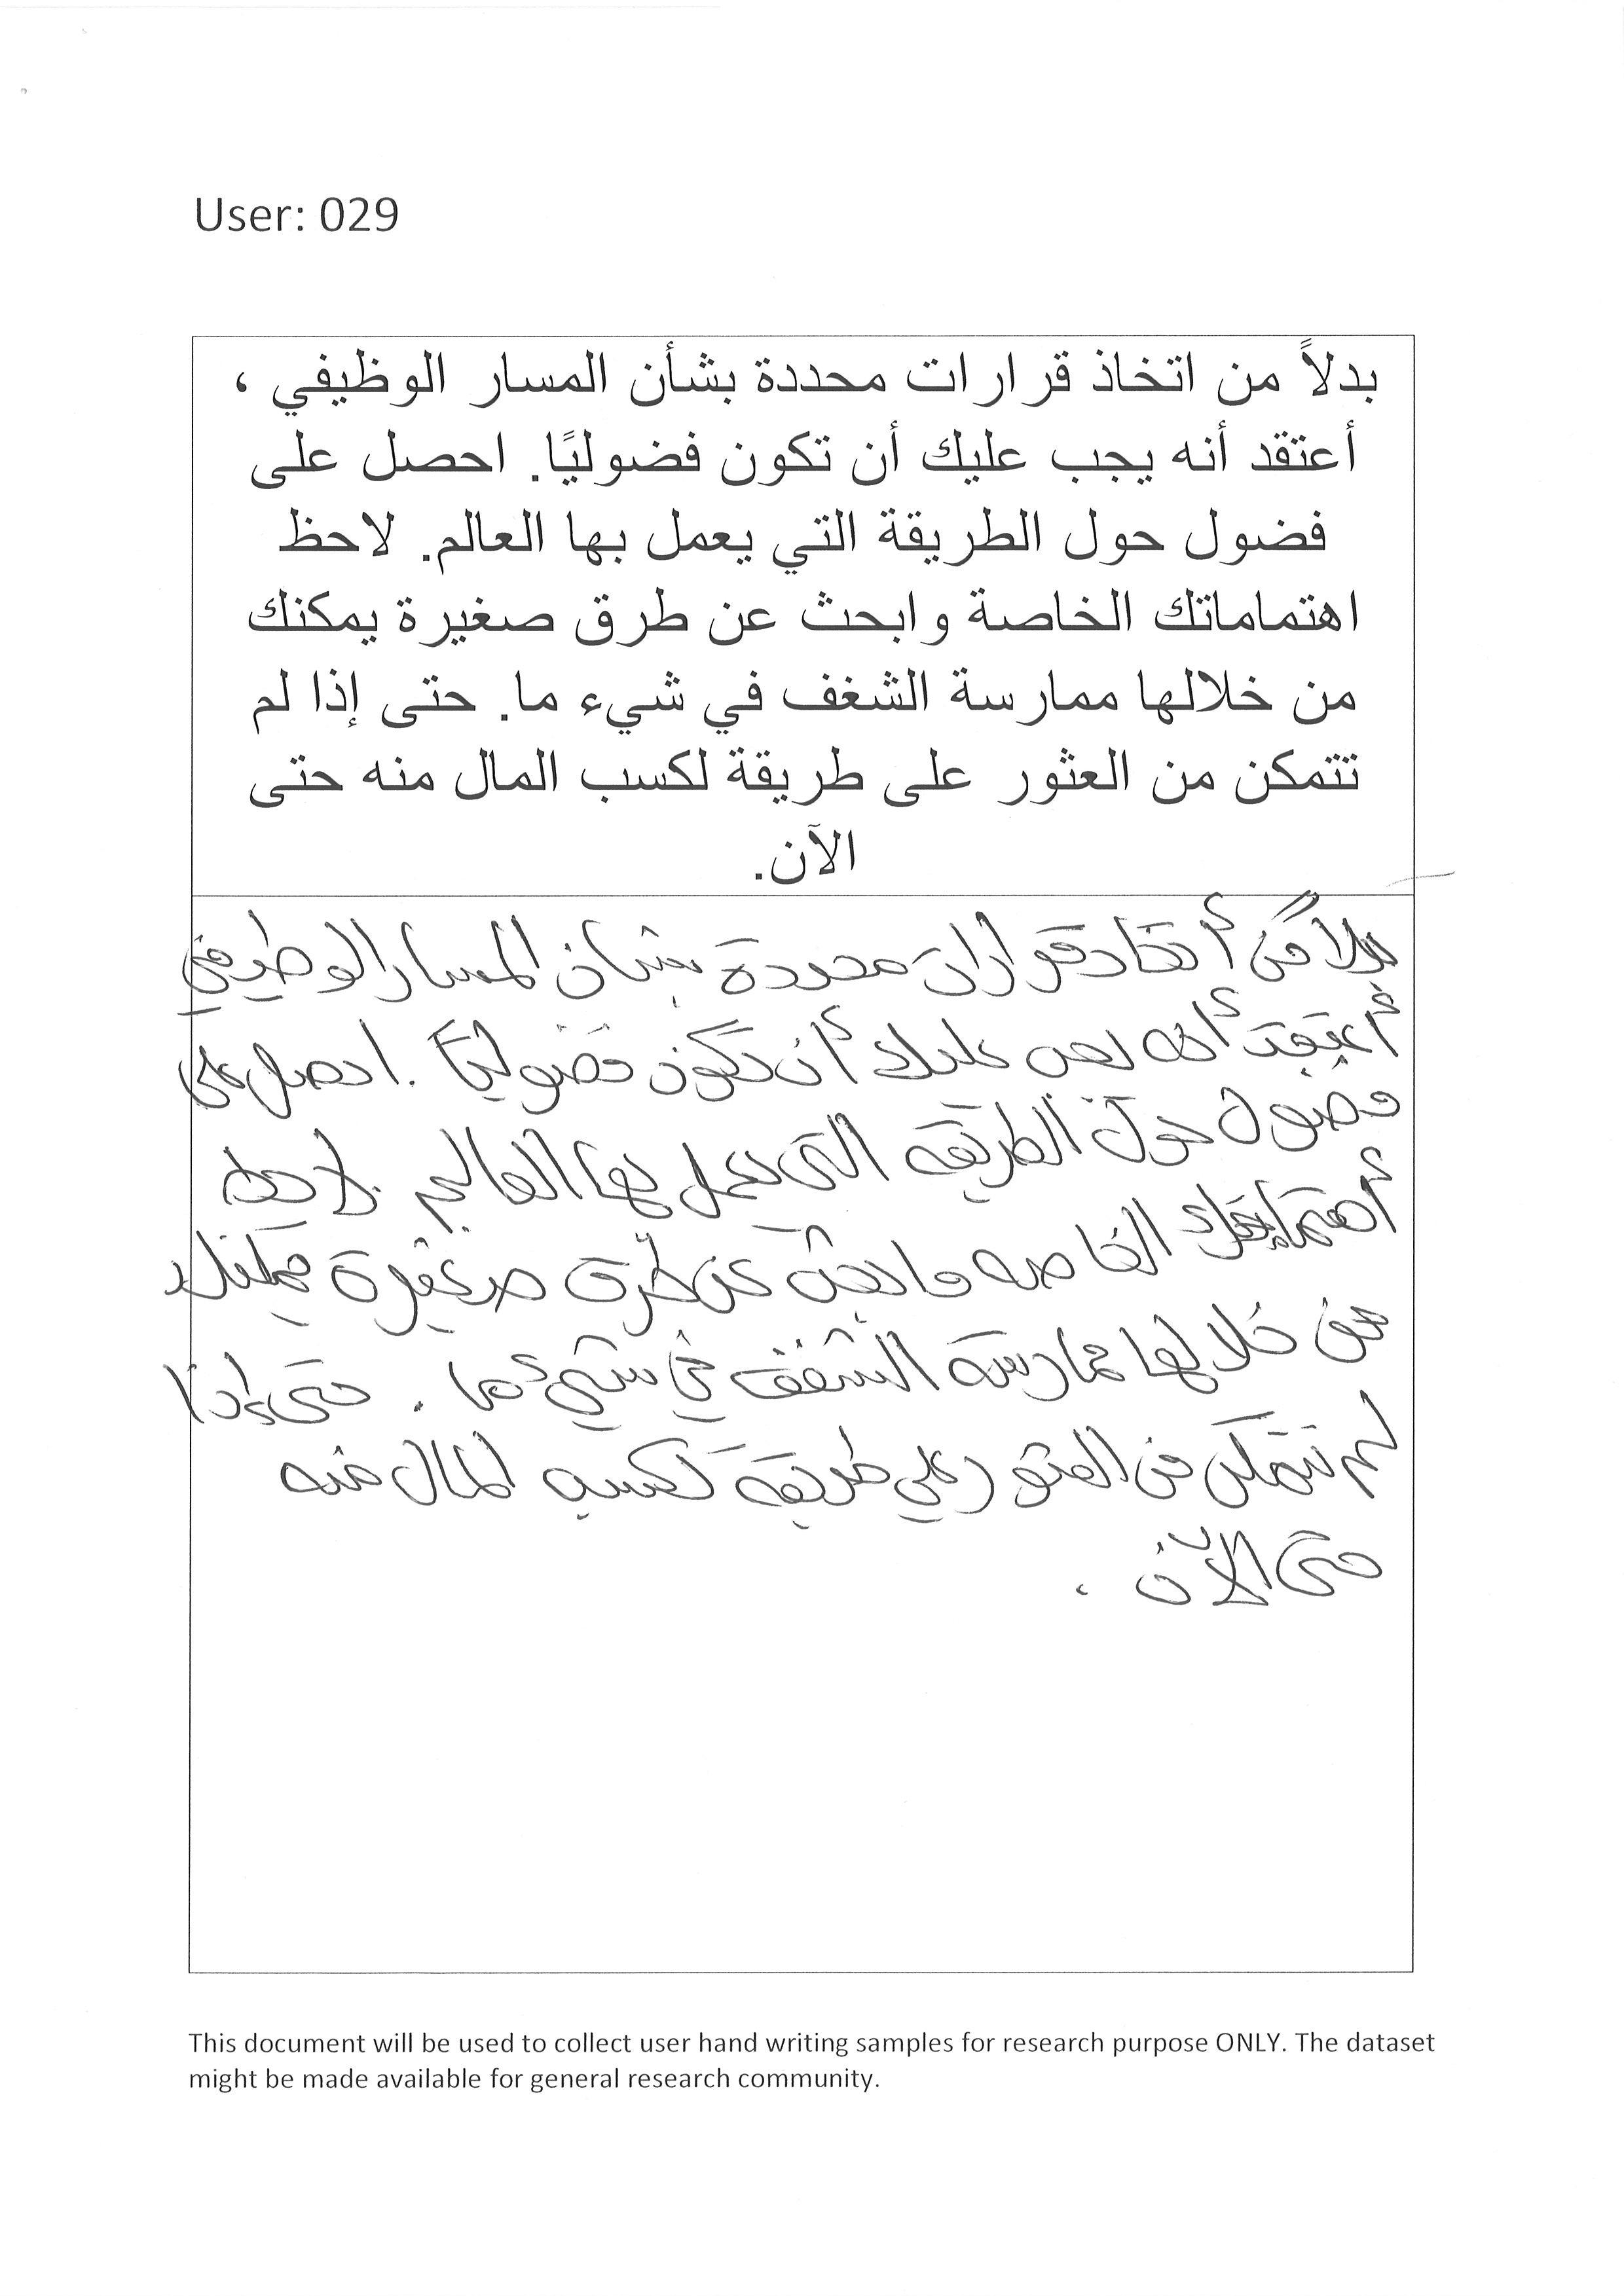 User: 029
بدلاً من اتخاذ قرارات محددة بشأن المسار الوظيفي ،
أعتقد أنه يجب عليك أن تكون فضوليًا. احصل على
فضول حول الطريقة التي يعمل بها العالم. لاحظ
اهتماماتك الخاصة وابحث عن طرق صغيرة يمكنك
من خلالها ممارسة الشغف في شيء ما. حتى إذا لم
تتمكن من العثور على طريقة لكسب المال منه حتى
الآن.
بدلاً من أتخاذ قرارات محددة بشأن المسار الوظيفي
أعتقد أنه يجب عليك أن تكون فضوليًا . احصل على
فضول حول الطريقه التي يعمل بها العالم . لاحظ
أهتماماتك الخاصه وابحث عن طرق صغيرة يمكنك
من خلالها ممارسة الشغف في شيء ما . حتى إذا
لم تتمكن من العثور على طريقة لكسب المال منه
حتى الآن .
This document will be used to collect user hand writing samples for research purpose ONLY. The dataset
might be made available for general research community.